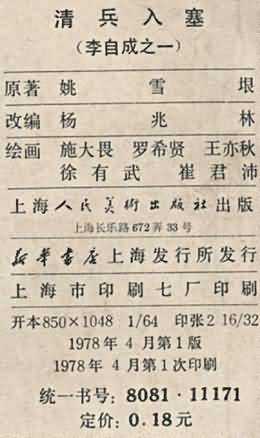 清兵入塞
(李自成之一)
原著 姚雪垠
改编 杨兆林
绘画 施大畏 罗希贤 王亦秋
徐有武 崔君沛
上海人民美術出版社出版
上海长乐路672弄33号
新华書店上海发行所发行
上海市印刷七厂印刷
开本850×1048 1/64 印张2 16/32
1978年4月第1版
1978年4月第1次印刷
统一书号:8081·11171
定价:0.18元